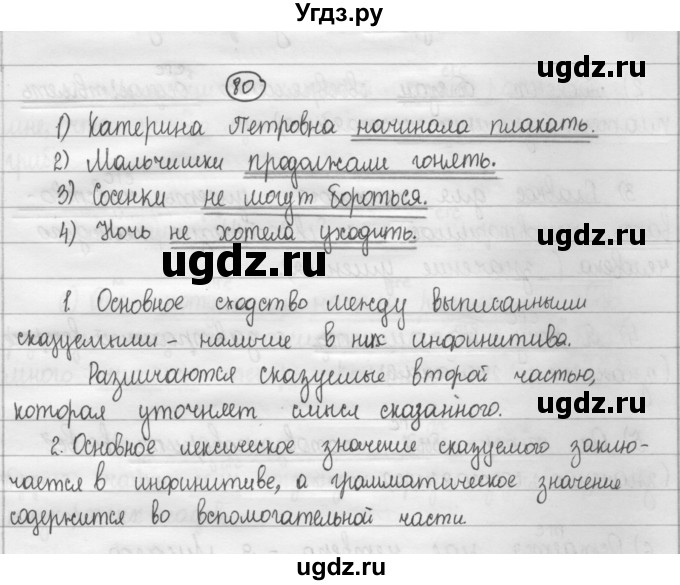 Угдз.ру
ugdz.ru
80
1) Катерина Петровна начинала плакать.
ugdz.ru
2) Мальчишки продолжали гонять.
3) Сосенки не могут бороться.
ugdz.ru
4) Ночь не хотела уходить.
ugdz.ru
ugdz.ru
1. Основное сходство между выписанными
сказуемыми - наличие в них инфинитива.
Различаются сказуемые второй частью,
ugdz.ru
которая уточняет смысл сказанного.
2. Основное лексическое значение сказуемого заклю-
чается в инфинитиве, а грамматическое значение
содержится во вспомогательной части.
ugdz.ru
ugdz.ru
ugdz.ru